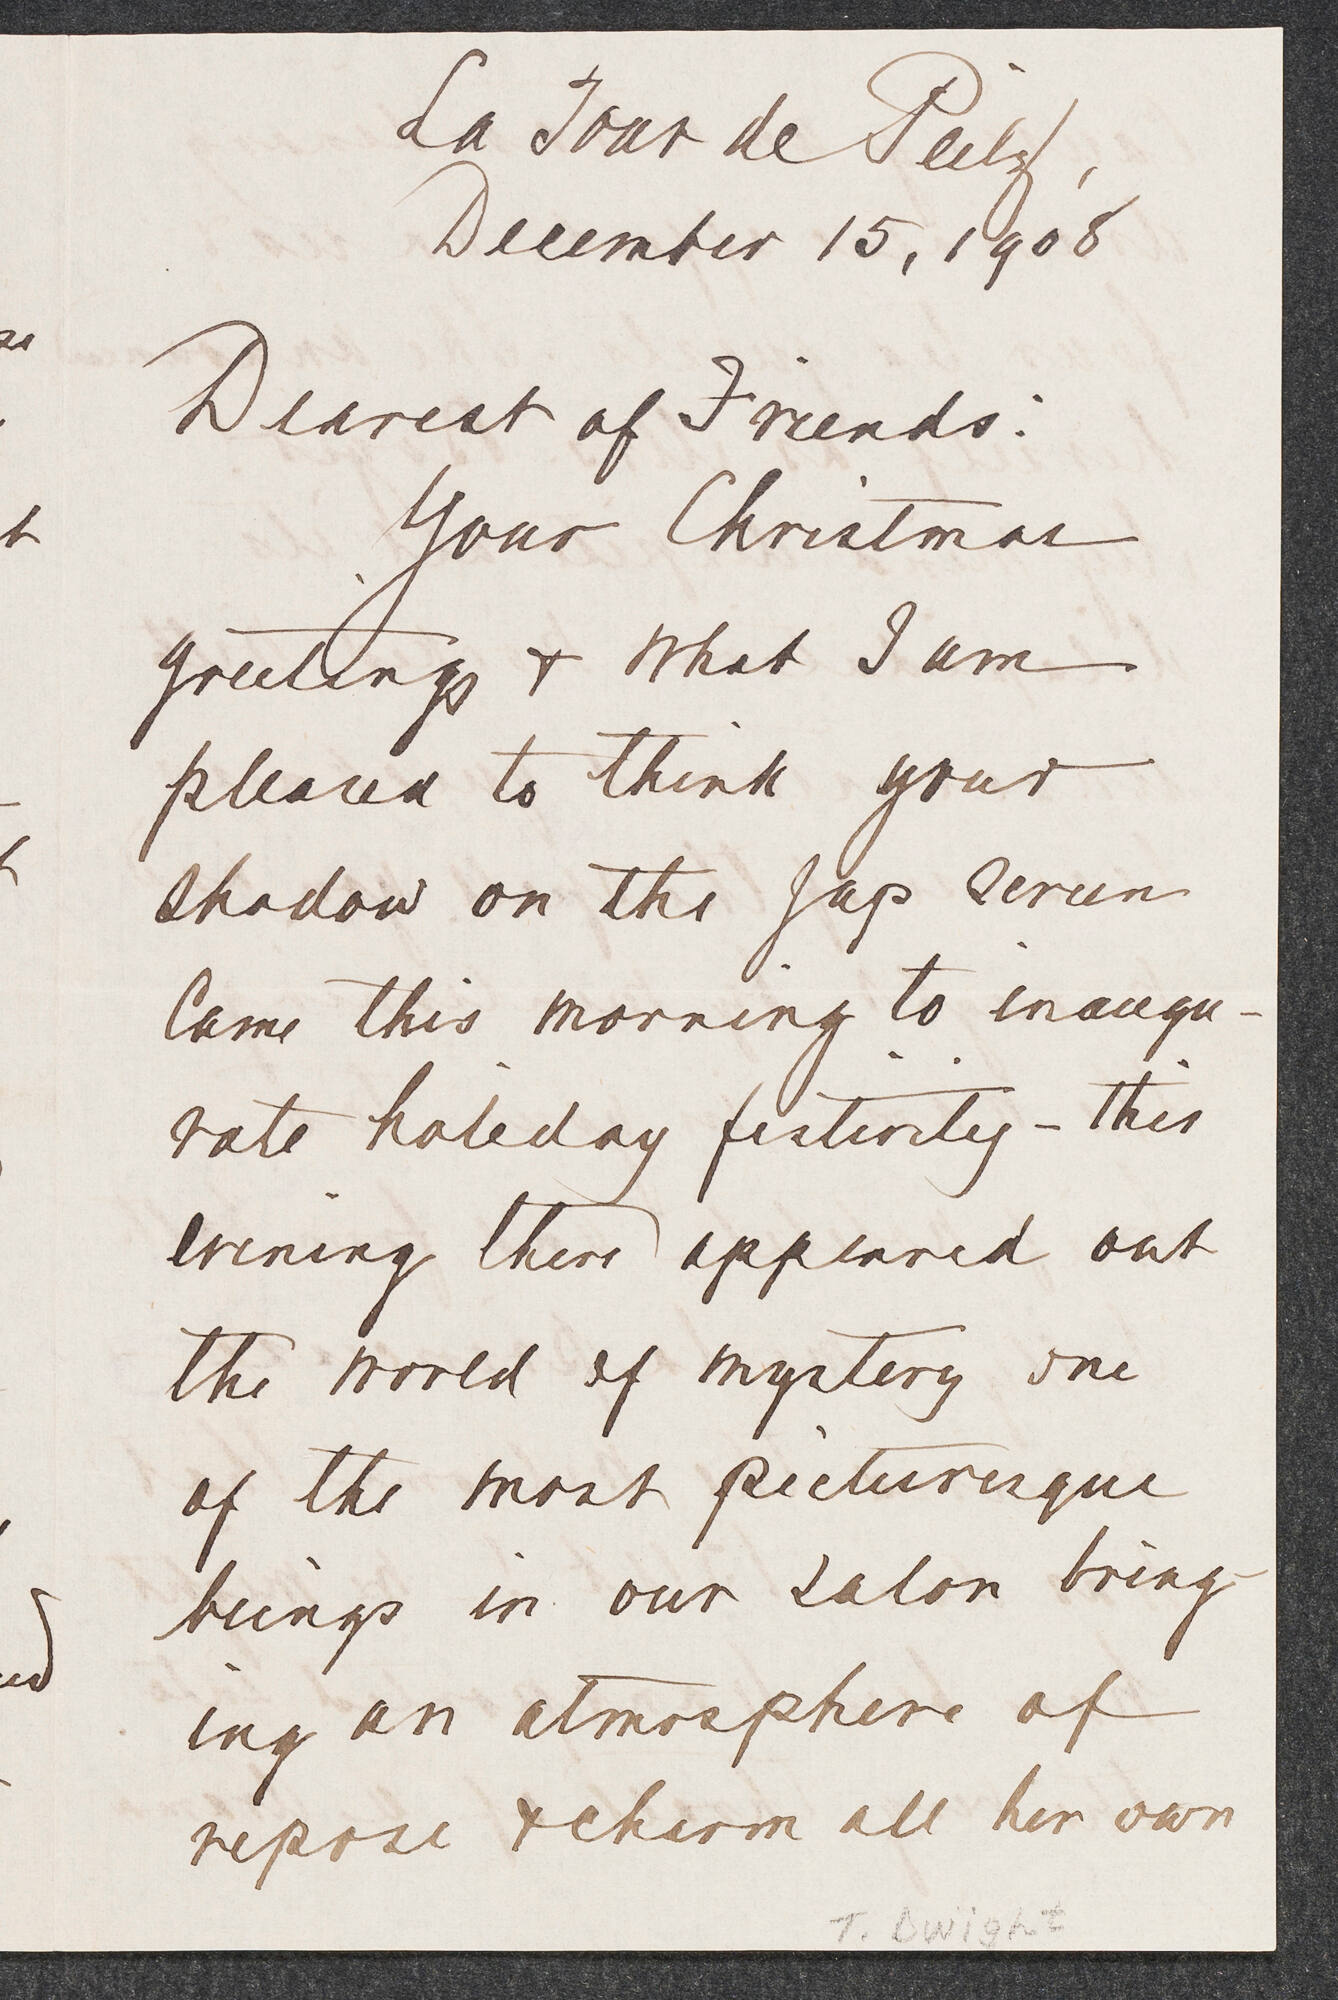 La Tour de Peilz,
December 15, 1908
Dearest of Friends:
Your Christmas
greetings & what I am
pleased to think your
shadow on the Jap screen
Came this morning to inaugu-
rate holiday festivity - this
evening there appeared out
the world of mystery one
of the most picturesque
beings in our salon bring-
ing an atmosphere of
repose & charm all her own
T. Dwight